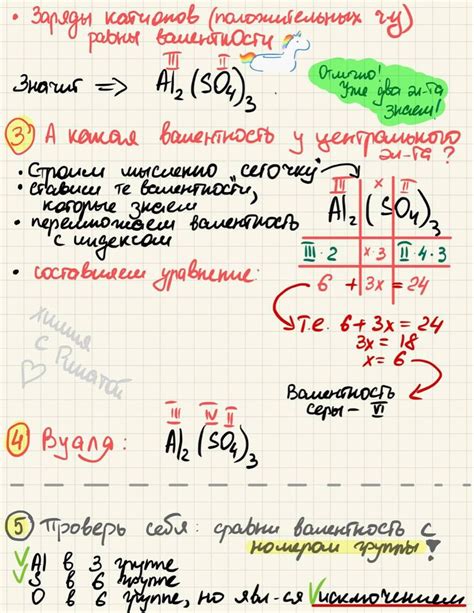 • Заряды катионов (положительных чу)
равны валентности
III II
Значит => Al₂(SO₄)₃
Отлично!
Уже два эл-та
знаем!
3 А какая валентность у центрального
эл-та?
• Строим мысленно "сеточку"
• ставим те валентности,
которые знаем
• перемножаем валентность
с индексом
• составляем уравнение:
III x II
Al₂(SO₄)₃
III·2 x·3 II·4·3
6 + 3x = 24
т.е. 6+3x = 24
3x = 18
x = 6
Валентность
серы – VI
химия
с Ринатой
4 Вуаля:
III IV II
Al₂(SO₄)₃
5 Проверь себя: сравни валентность с
номером группы!
Al в 3 группе
S в 6 группе
O в 6 группе, но явл-ся исключением